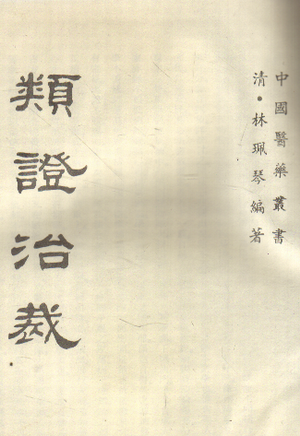 中國醫藥叢書
清·林珮琴編著
類證治裁